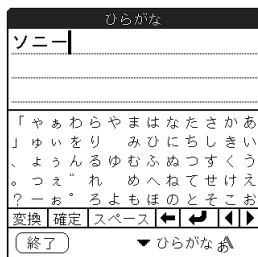 ひらがな
ソニー
「ゃぁわらやまはなたさかあ
」ゅぃをり みひにちしきい
、ょぅんるゆむふぬつすくう
。っぇ゛れ めへねてせけえ
？ーぉ゜ろよもほのとそこお
変換 確定 スペース
終了 ひらがな あA